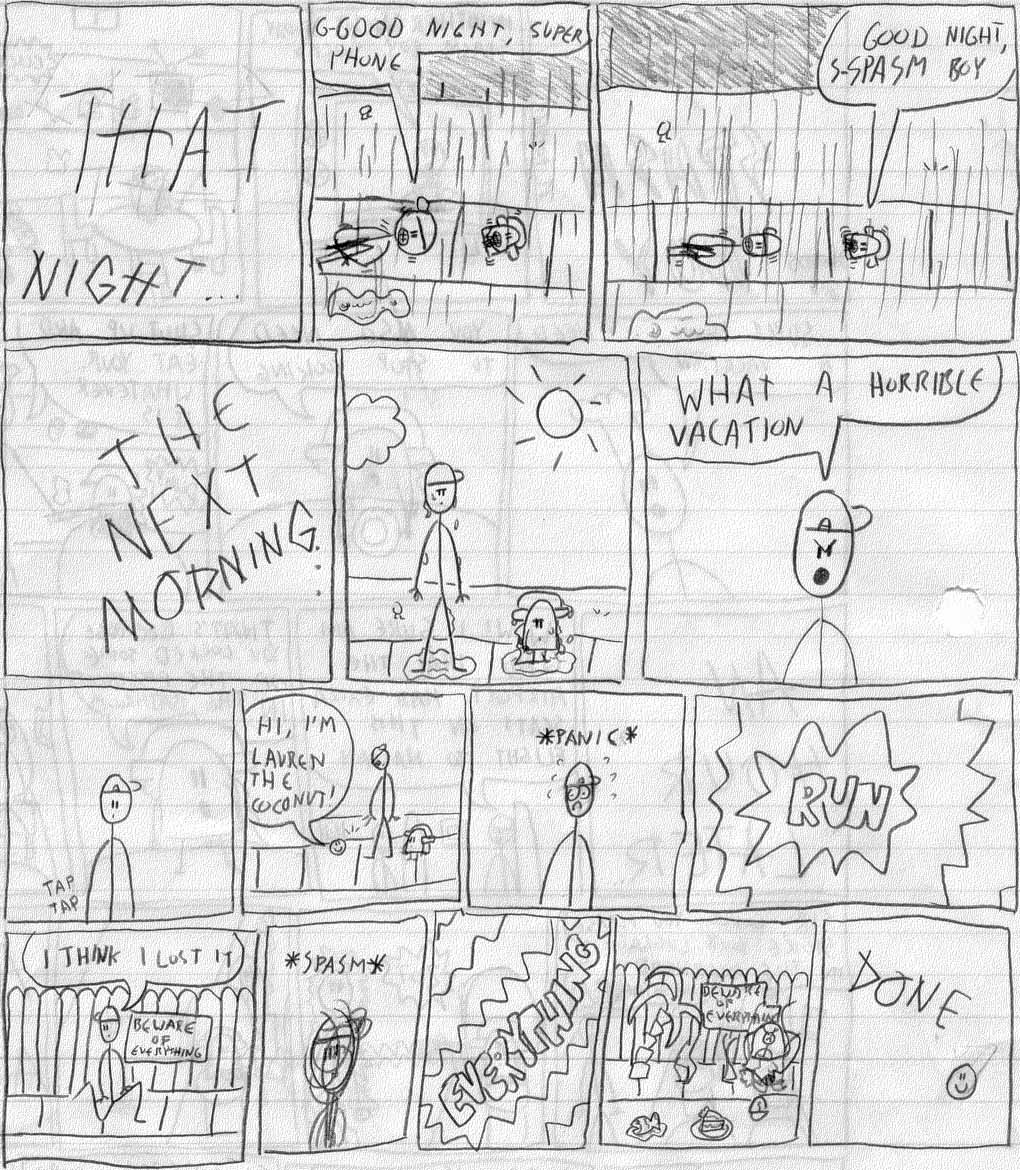 THAT
NIGHT...
G-GOOD NIGHT, SUPER
PHONE
GOOD NIGHT,
S-SPASM BOY
THE
NEXT
MORNING...
WHAT A HORRIBLE
VACATION
TAP
TAP
HI, I'M
LAUREN
THE
COCONUT!
*PANIC*
RUN
I THINK I LOST IT
BEWARE
OF
EVERYTHING
*SPASM*
EVERYTHING
BEWARE
OF
EVERYTHING
DONE